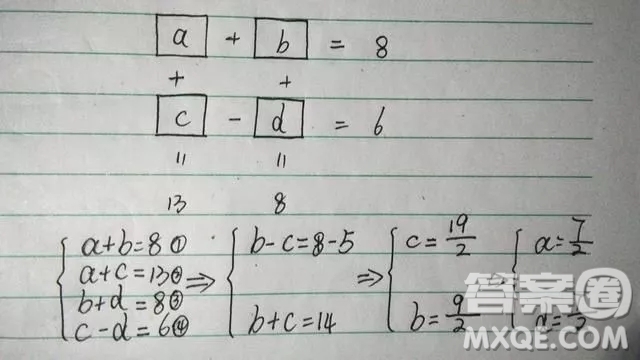 a + b = 8
+ +
c - d = 6
= =
13 8
a+b=8①
a+c=13②
b+d=8③
c-d=6④
⇒
b-c=8-5
b+c=14
⇒
c=19/2
b=9/2
a=7/2
答案圈
MXQE.COM